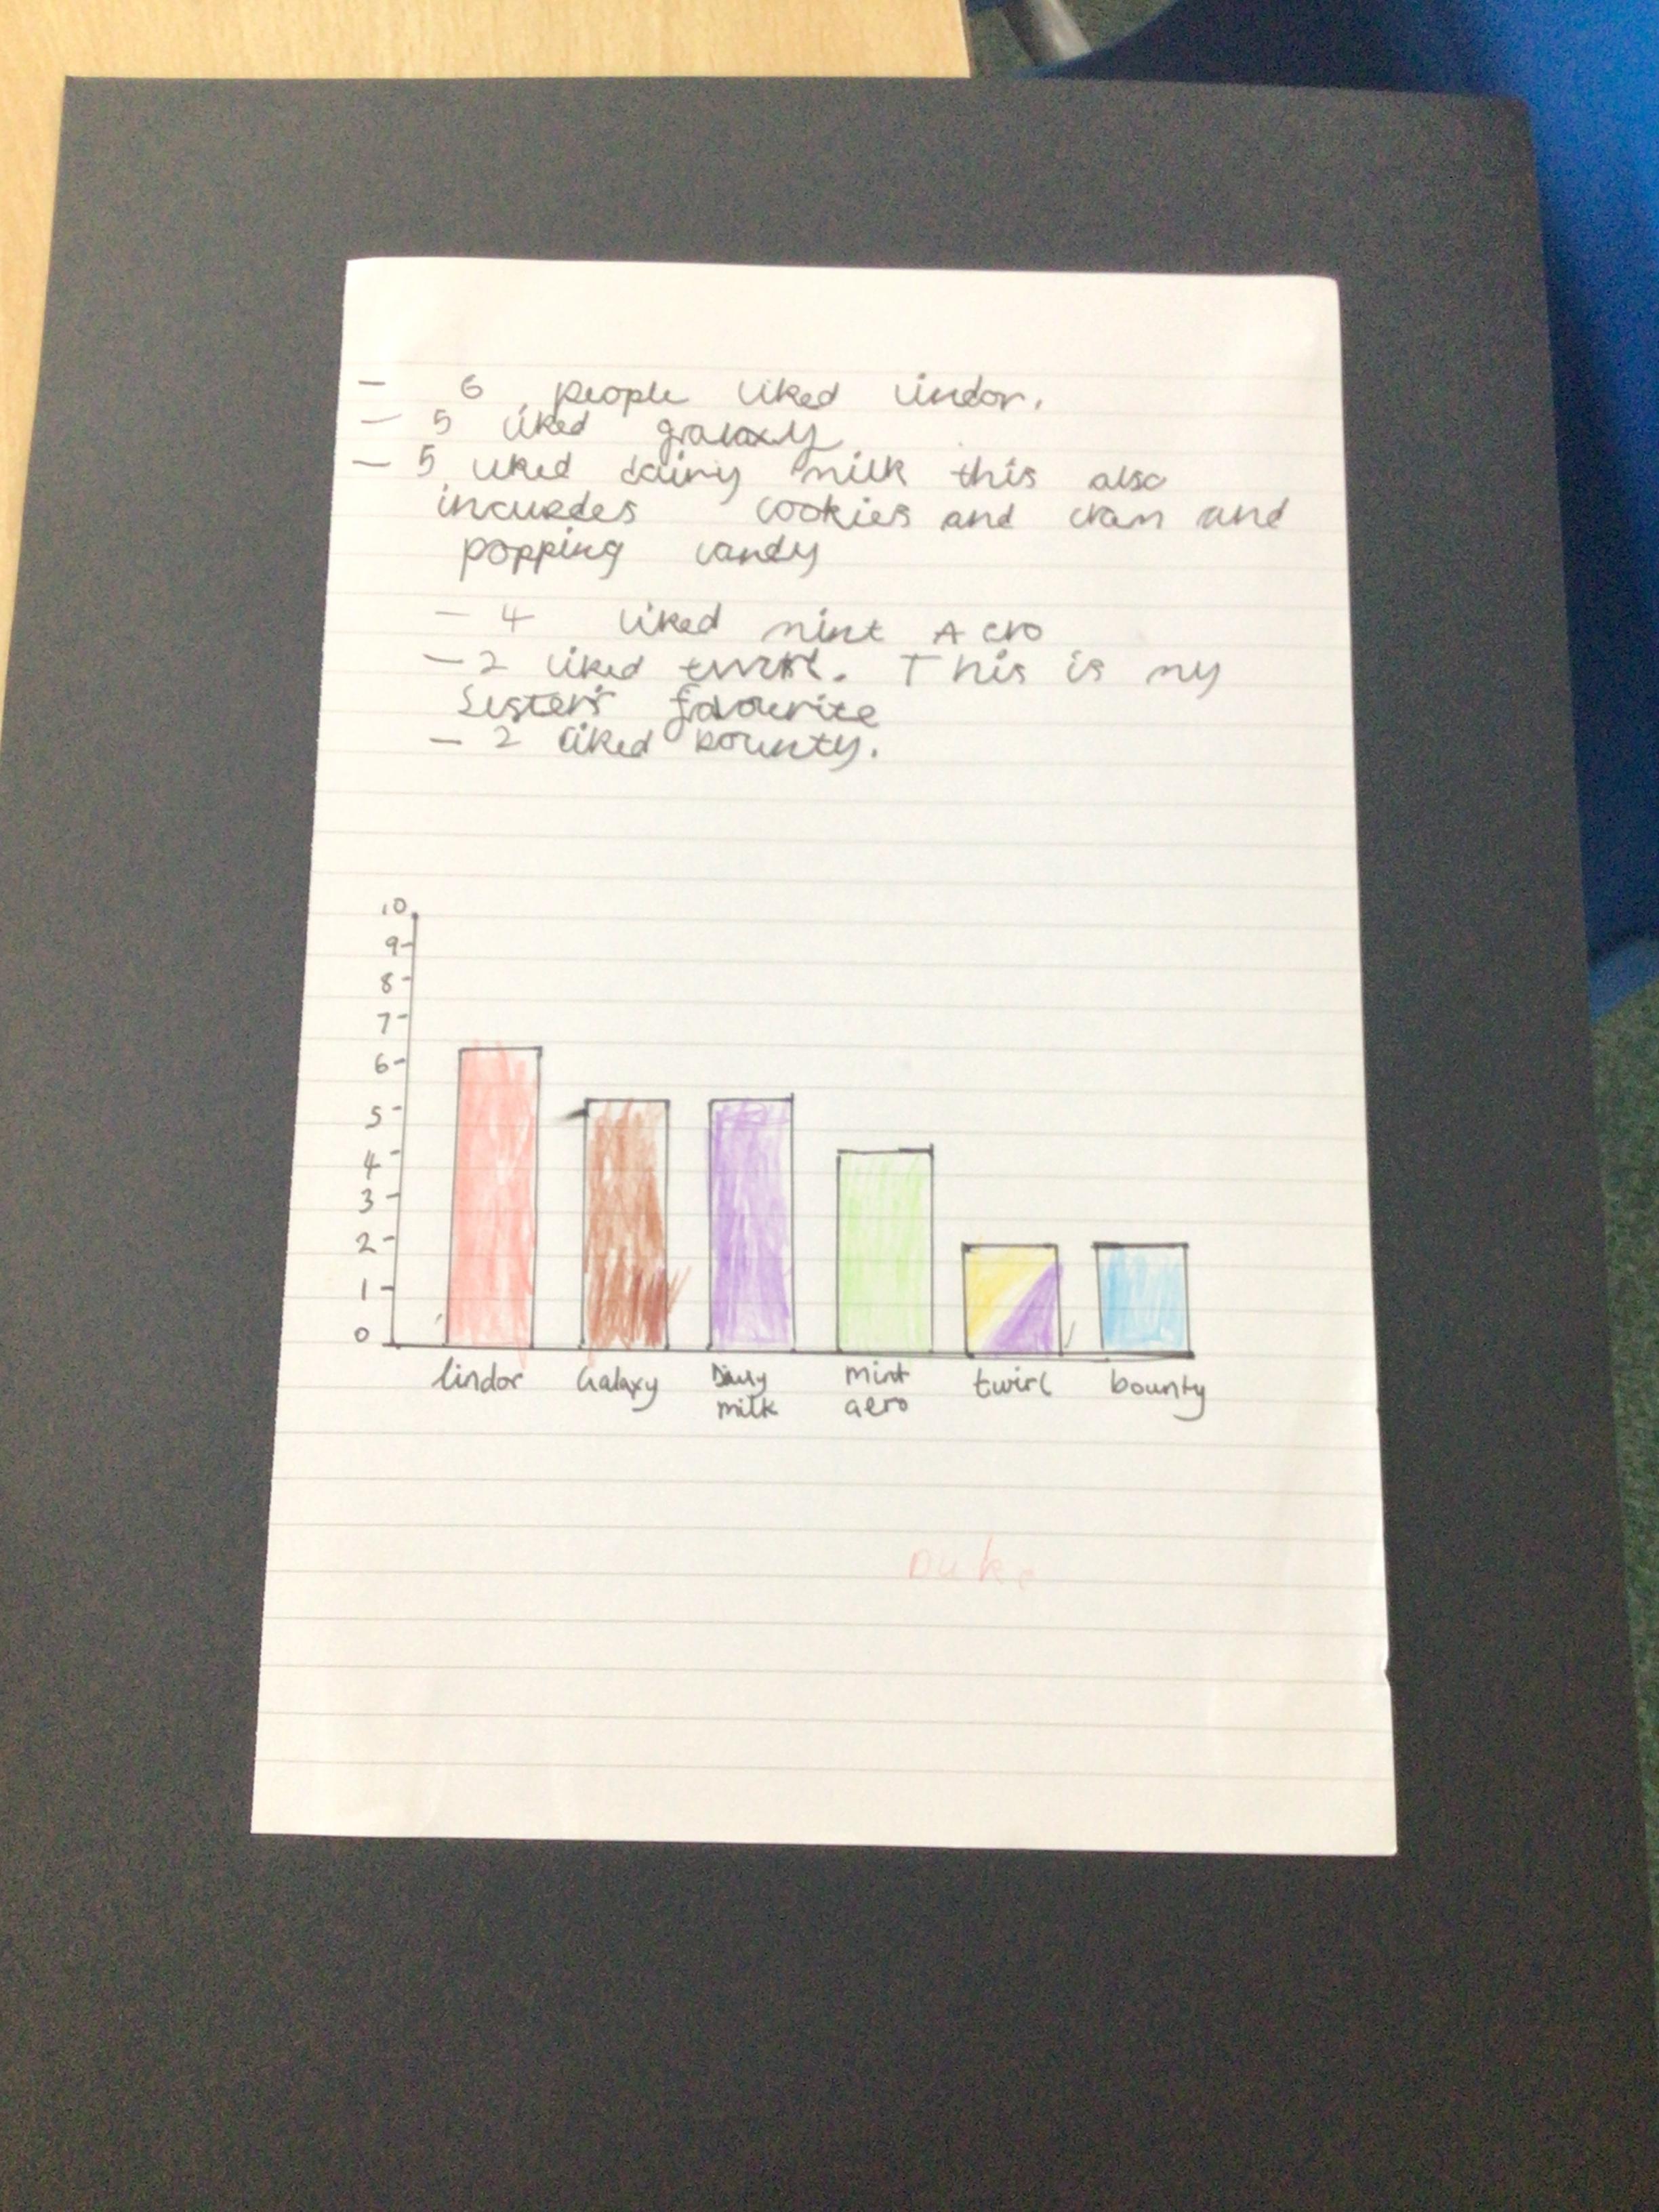 - 6 people liked lindor.
- 5 liked galaxy
- 5 liked dairy milk this also
incuedes cookies and cram and
popping candy
- 4 liked mint Aero
- 2 liked twirl. This is my
Sister's favourite
- 2 liked bounty.
10
9
8
7
6
5
4
3
2
1
0
lindor Galaxy Dairy milk mint aero twirl bounty
Duke